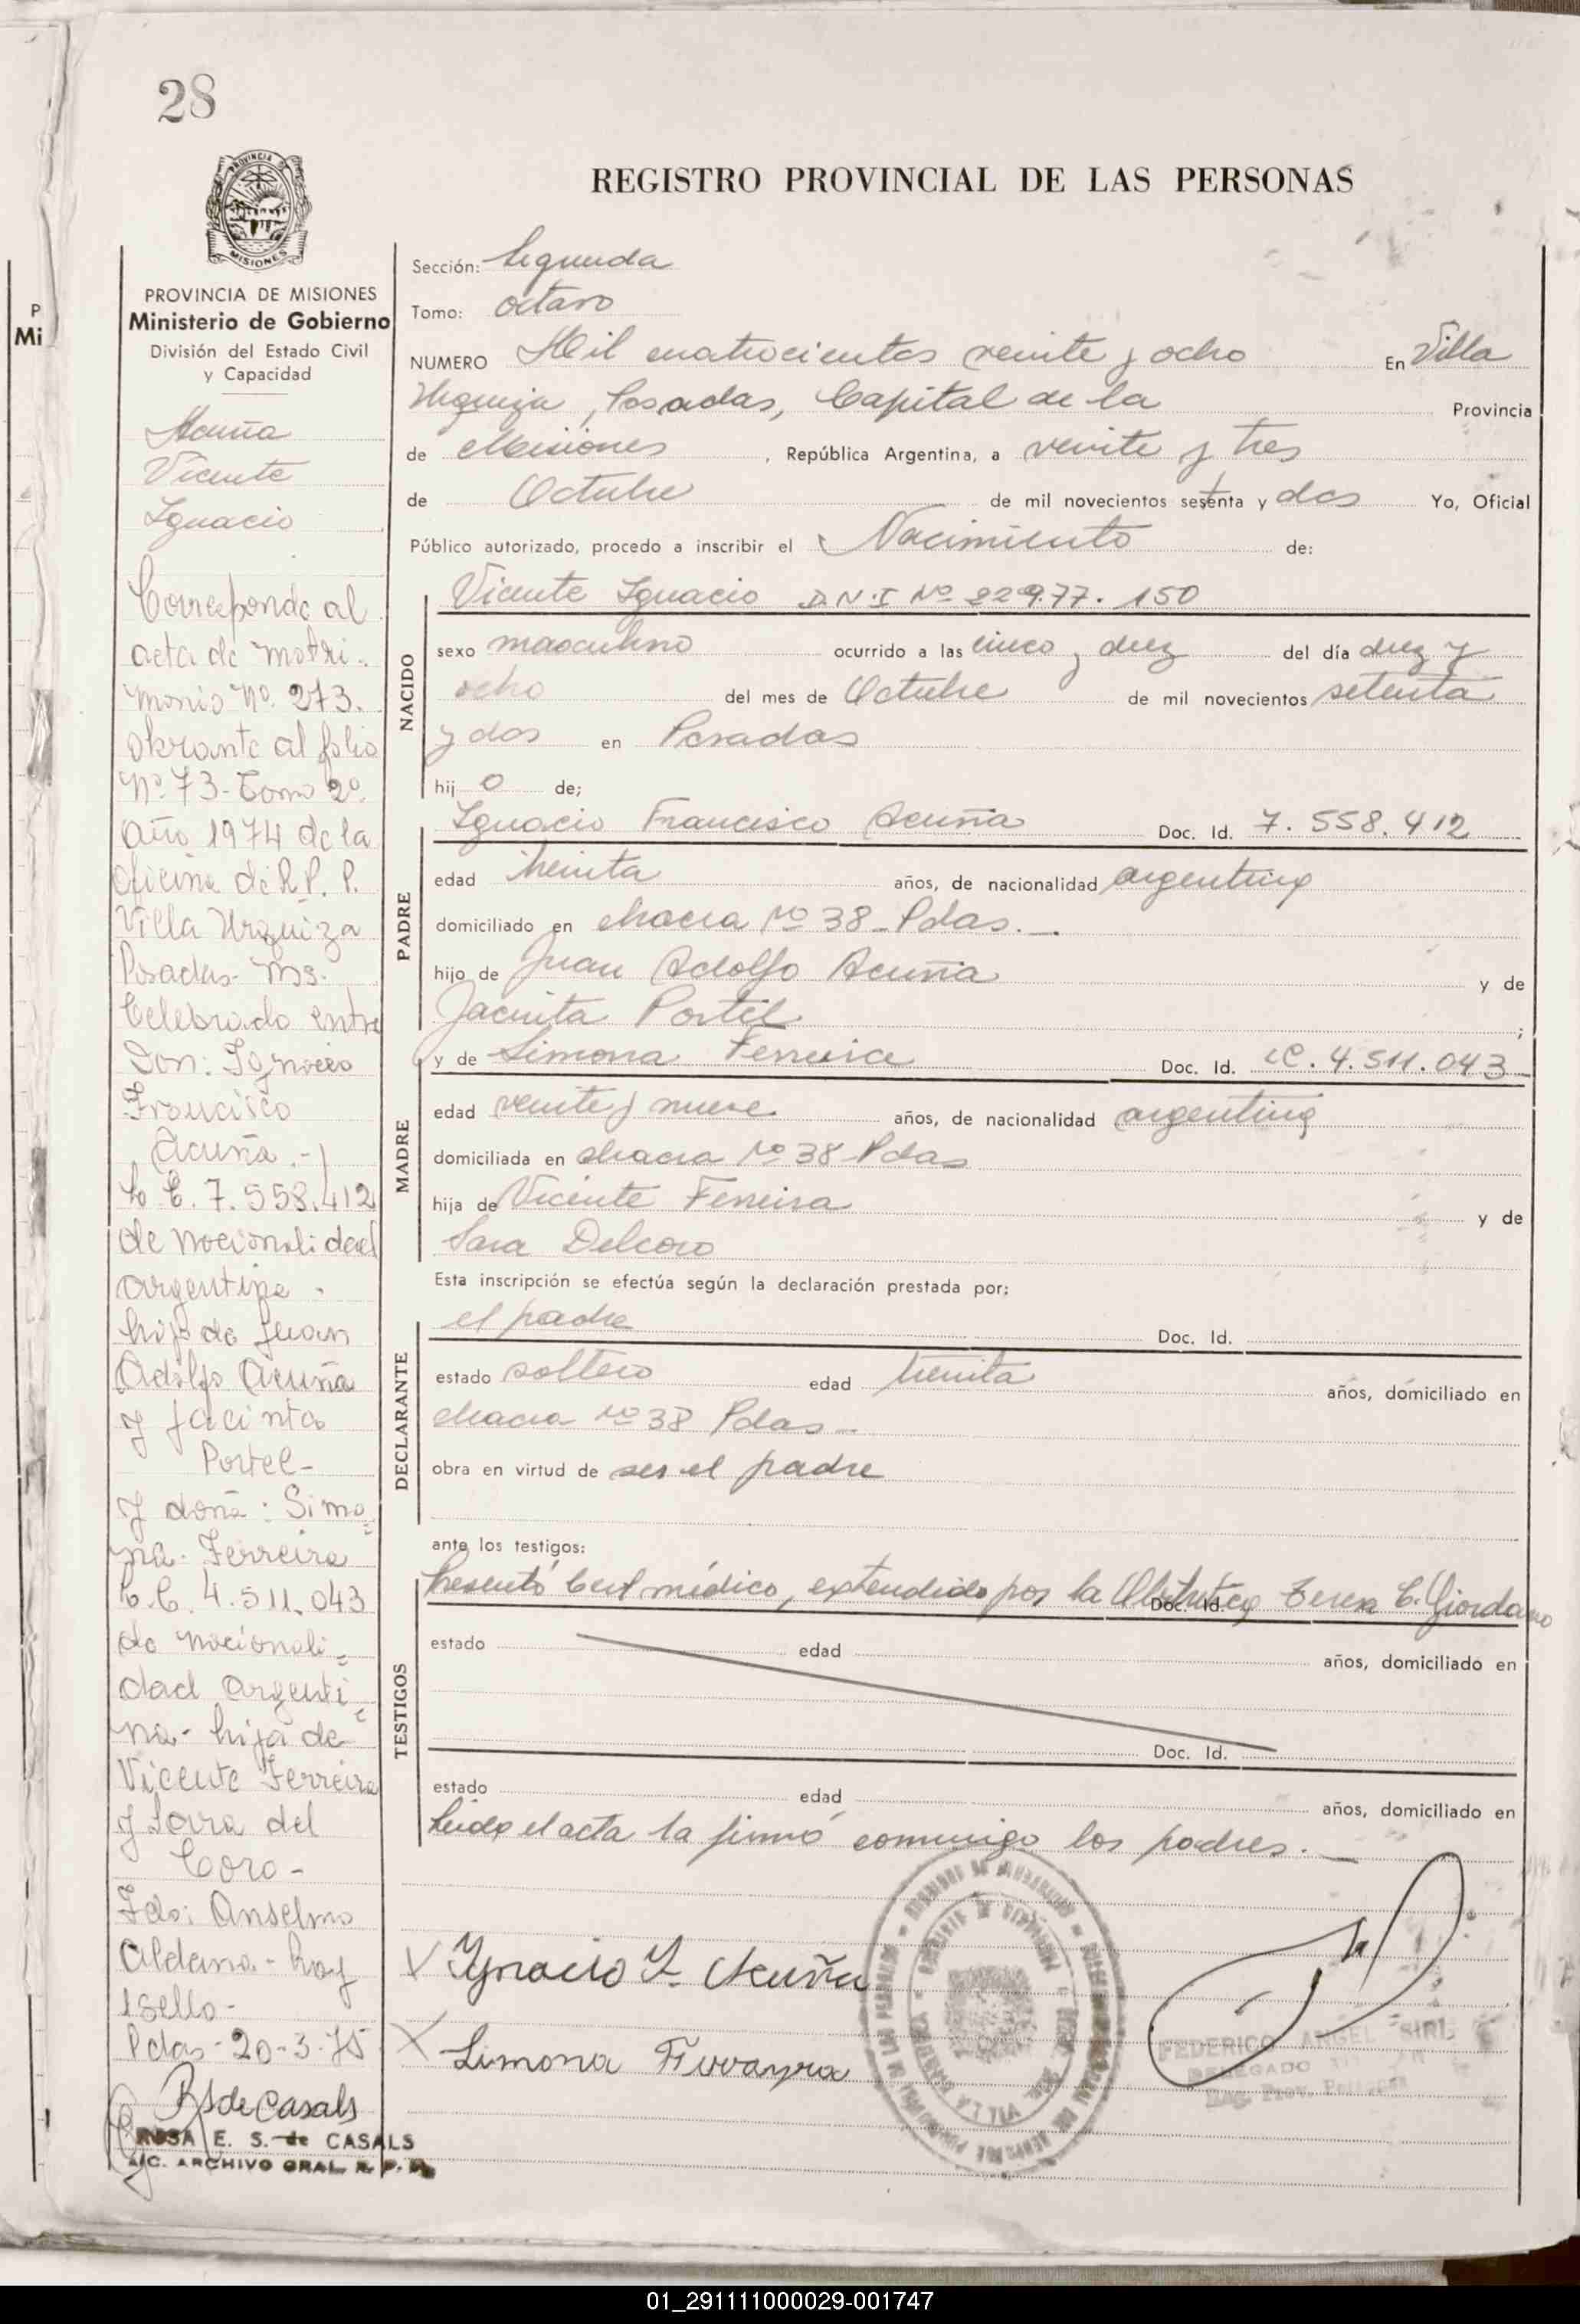 28
PROVINCIA DE
MISIONES
REGISTRO PROVINCIAL DE LAS PERSONAS
PROVINCIA DE MISIONES
Ministerio de Gobierno
División del Estado Civil
y Capacidad
Acuña
Vicente
Ignacio
Corresponde al
acta de matri-
monio Nº. 273.
obrante al folio
Nº. 73-Tomo 2º.
año 1974 de la
oficina de R. P. P.
Villa Urquiza
Posadas- Ms.
Celebrado entre
Don: Ignacio
Francisco
Acuña.-
L C. 7.558.412
de nacionalidad
argentina -
hijo de Juan
Adolfo Acuña
y Jacinta
Portel-
y doña: Simo
na- Ferreira
L.C. 4.511.043
de nacionali=
dad argenti=
na- hija de
Vicente Ferreira
y Sara del
Coro-
Fdo: Anselmo
Aldana- hay
1 sello-
Pdas-20-3-75
RSdeCasals
ROSA E. S. de CASALS
A/C. ARCHIVO GRAL. R. P. P.
Sección: Segunda
Tomo: octavo
NUMERO Mil cuatrocientos veinte y ocho En Villa
Urquiza, Posadas, Capital de la Provincia
de Misiones, República Argentina, a veinte y tres
de Octubre de mil novecientos setenta y dos Yo, Oficial
Público autorizado, procedo a inscribir el Nacimiento de:
NACIDO
Vicente Ignacio D.N.I Nº 22977.150
sexo masculino ocurrido a las cinco y diez del día diez y
ocho del mes de Octubre de mil novecientos setenta
y dos en Posadas
hij o de;
PADRE
Ignacio Francisco Acuña Doc. Id. 7.558.412
edad treinta años, de nacionalidad argentina
domiciliado en chacra Nº 38-Pdas.-
hijo de Juan Adolfo Acuña y de
Jacinta Portel ;
MADRE
y de Simona Ferreira Doc. Id. LC. 4.511.043
edad veinte y nueve años, de nacionalidad argentina
domiciliada en chacra Nº 38-Pdas
hija de Vicente Ferreira y de
Sara Delcoro
Esta inscripción se efectúa según la declaración prestada por:
DECLARANTE
el padre Doc. Id.
estado soltero edad treinta años, domiciliado en
chacra Nº 38 Pdas-
obra en virtud de ser el padre
ante los testigos:
TESTIGOS
Presentó Cert médico, extendido por la Obstetra Teresa C. Giordano
Doc. Id.
estado edad años, domiciliado en
Doc. Id.
estado edad años, domiciliado en
Leída el acta la firmó conmigo los padres.-
X Ygnacio F. Acuña
X Simona Firrayra
FEDERICO ANGEL SIRI
DELEGADO
Reg. Prov. Personas
P
Mi
01_291111000029-001747